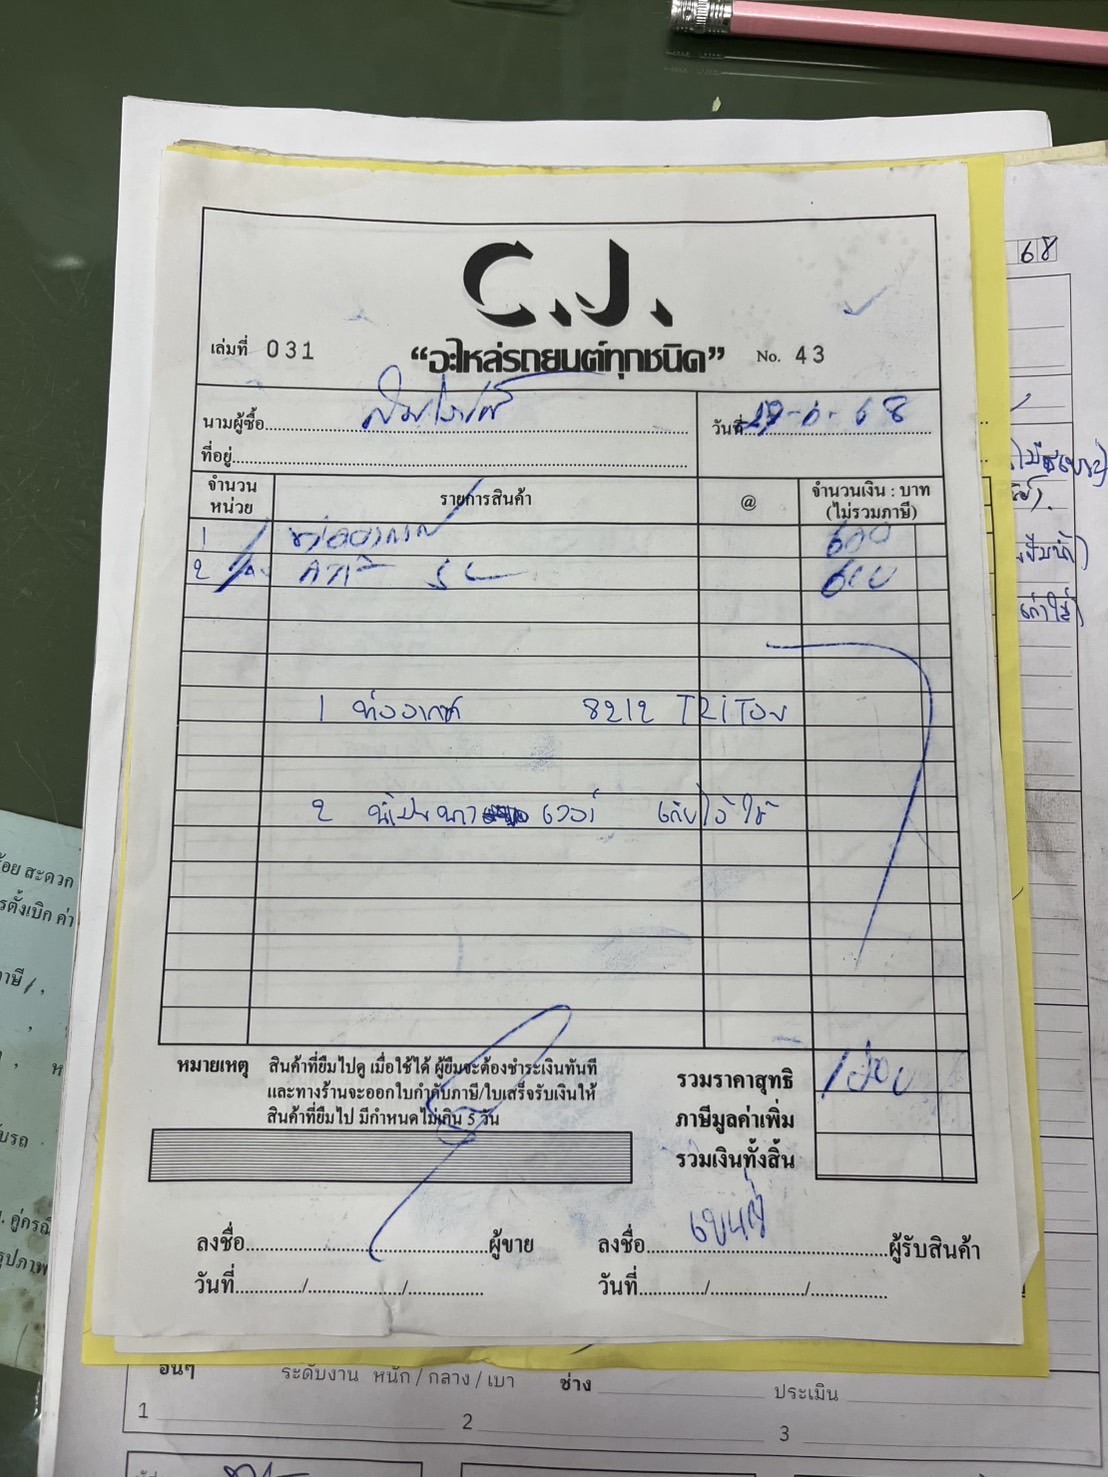 68
C.J.
เล่มที่ 031
“อะไหล่รถยนต์ทุกชนิด”
No. 43
นามผู้ซื้อ
วันที่ 29-6-68
ที่อยู่
จำนวน หน่วย
รายการสินค้า
@
จำนวนเงิน : บาท (ไม่รวมภาษี)
1 ท่ออากาศ 600
2 600
1 ท่ออากาศ 8212 TRITON
2 เก็บไว้ใช้
หมายเหตุ สินค้าที่ยืมไปดู เมื่อใช้ได้ ผู้ยืมจะต้องชำระเงินทันที
และทางร้านจะออกใบกำกับภาษี/ใบเสร็จรับเงินให้
สินค้าที่ยืมไป มีกำหนดไม่เกิน 5 วัน
รวมราคาสุทธิ 1200
ภาษีมูลค่าเพิ่ม
รวมเงินทั้งสิ้น
ลงชื่อ ผู้ขาย
ลงชื่อ ผู้รับสินค้า
วันที่ / /
วันที่ / /
อื่นๆ ระดับงาน หนัก / กลาง / เบา ช่าง ประเมิน
1 2 3